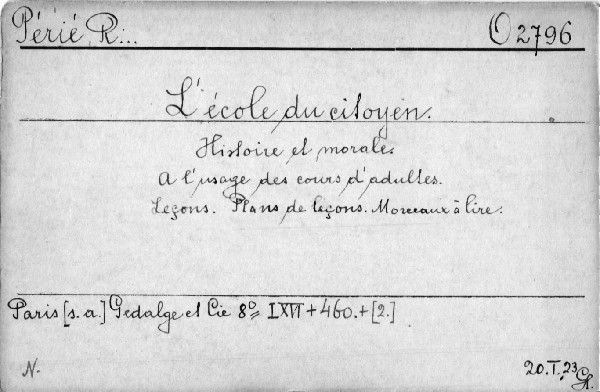 Périé, R... O 2796
L'école du citoyen.
Histoire et morale.
A l'usage des cours d'adultes.
Leçons. Plans de leçons. Morceaux à lire.
Paris [s. a.] Gedalge et Cie 8° LXVI + 460. + [2.]
N. 20. I. 23